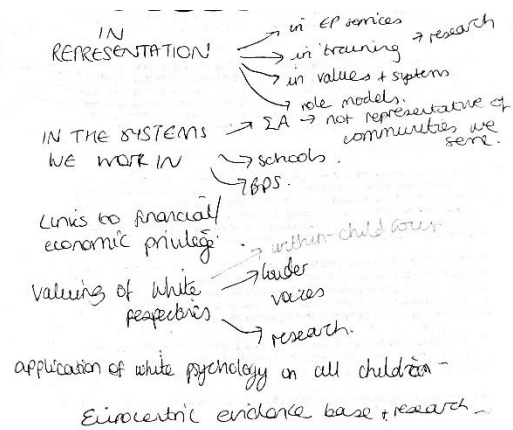 IN REPRESENTATION
→ in EP services
→ in training → research
→ in values + systems
→ role models.
IN THE SYSTEMS
WE WORK IN
→ → not representative of
communities we
serve.
→ schools.
→ BPS.
Links to financial/
economic privilege.
Valuing of White
perspectives
→ within-child
→ louder
voices
→ research.
application of white psychology on all children -
Eurocentric evidence base + research -